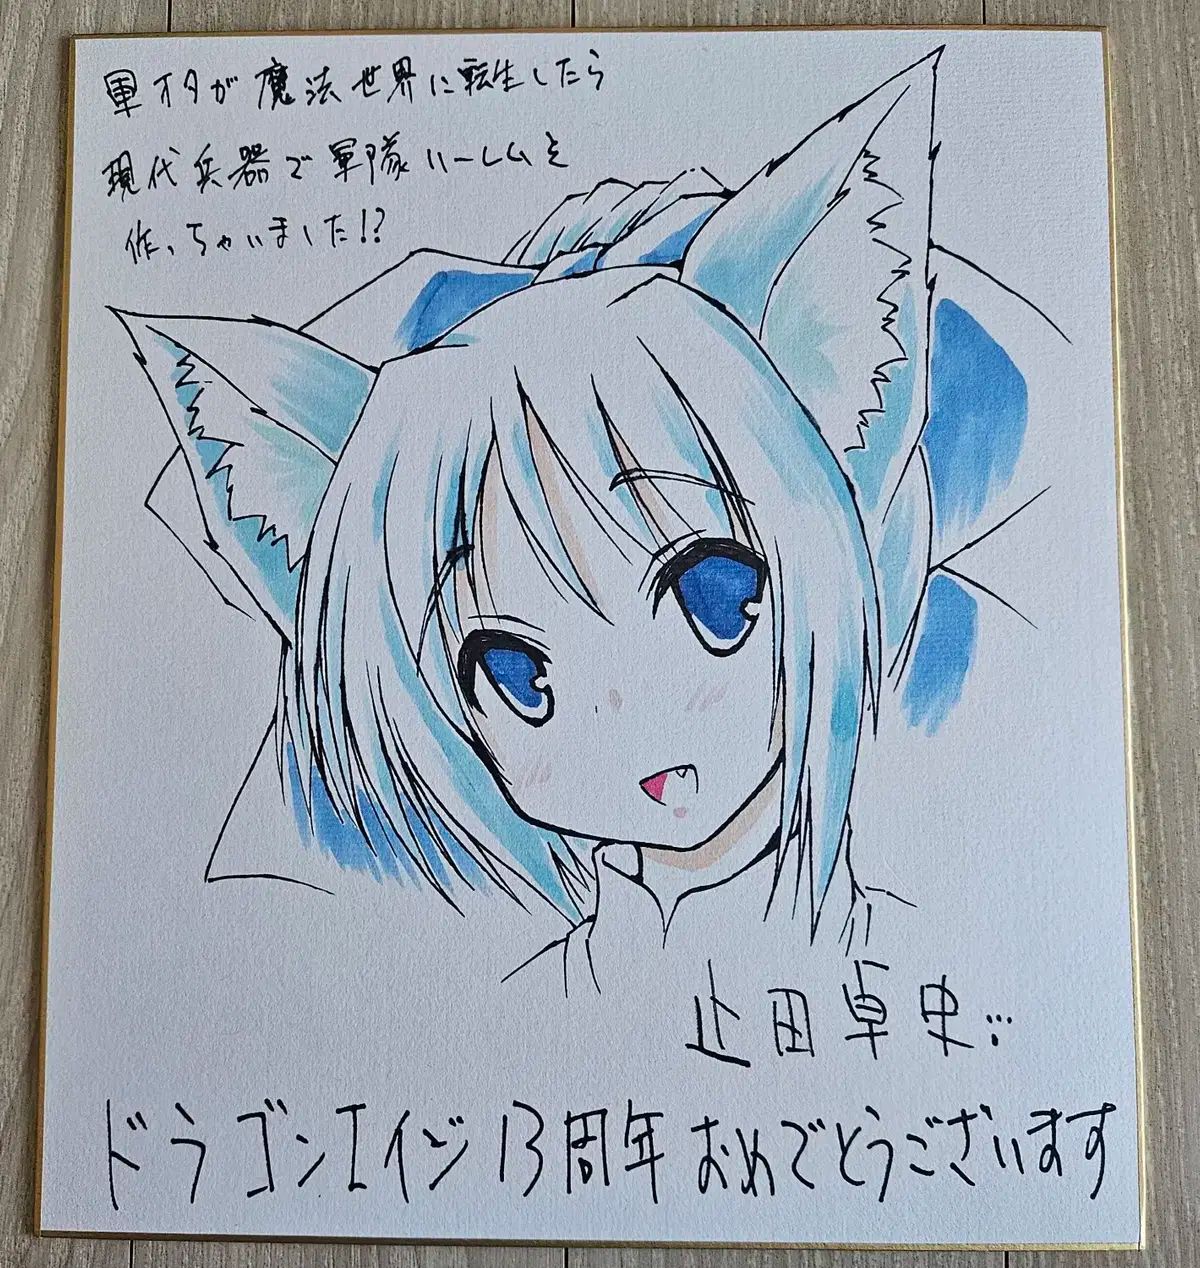 軍オタが魔法世界に転生したら
現代兵器で軍隊ハーレムを
作っちゃいました!?
止田卓史…
ドラゴンエイジ13周年おめでとうございます